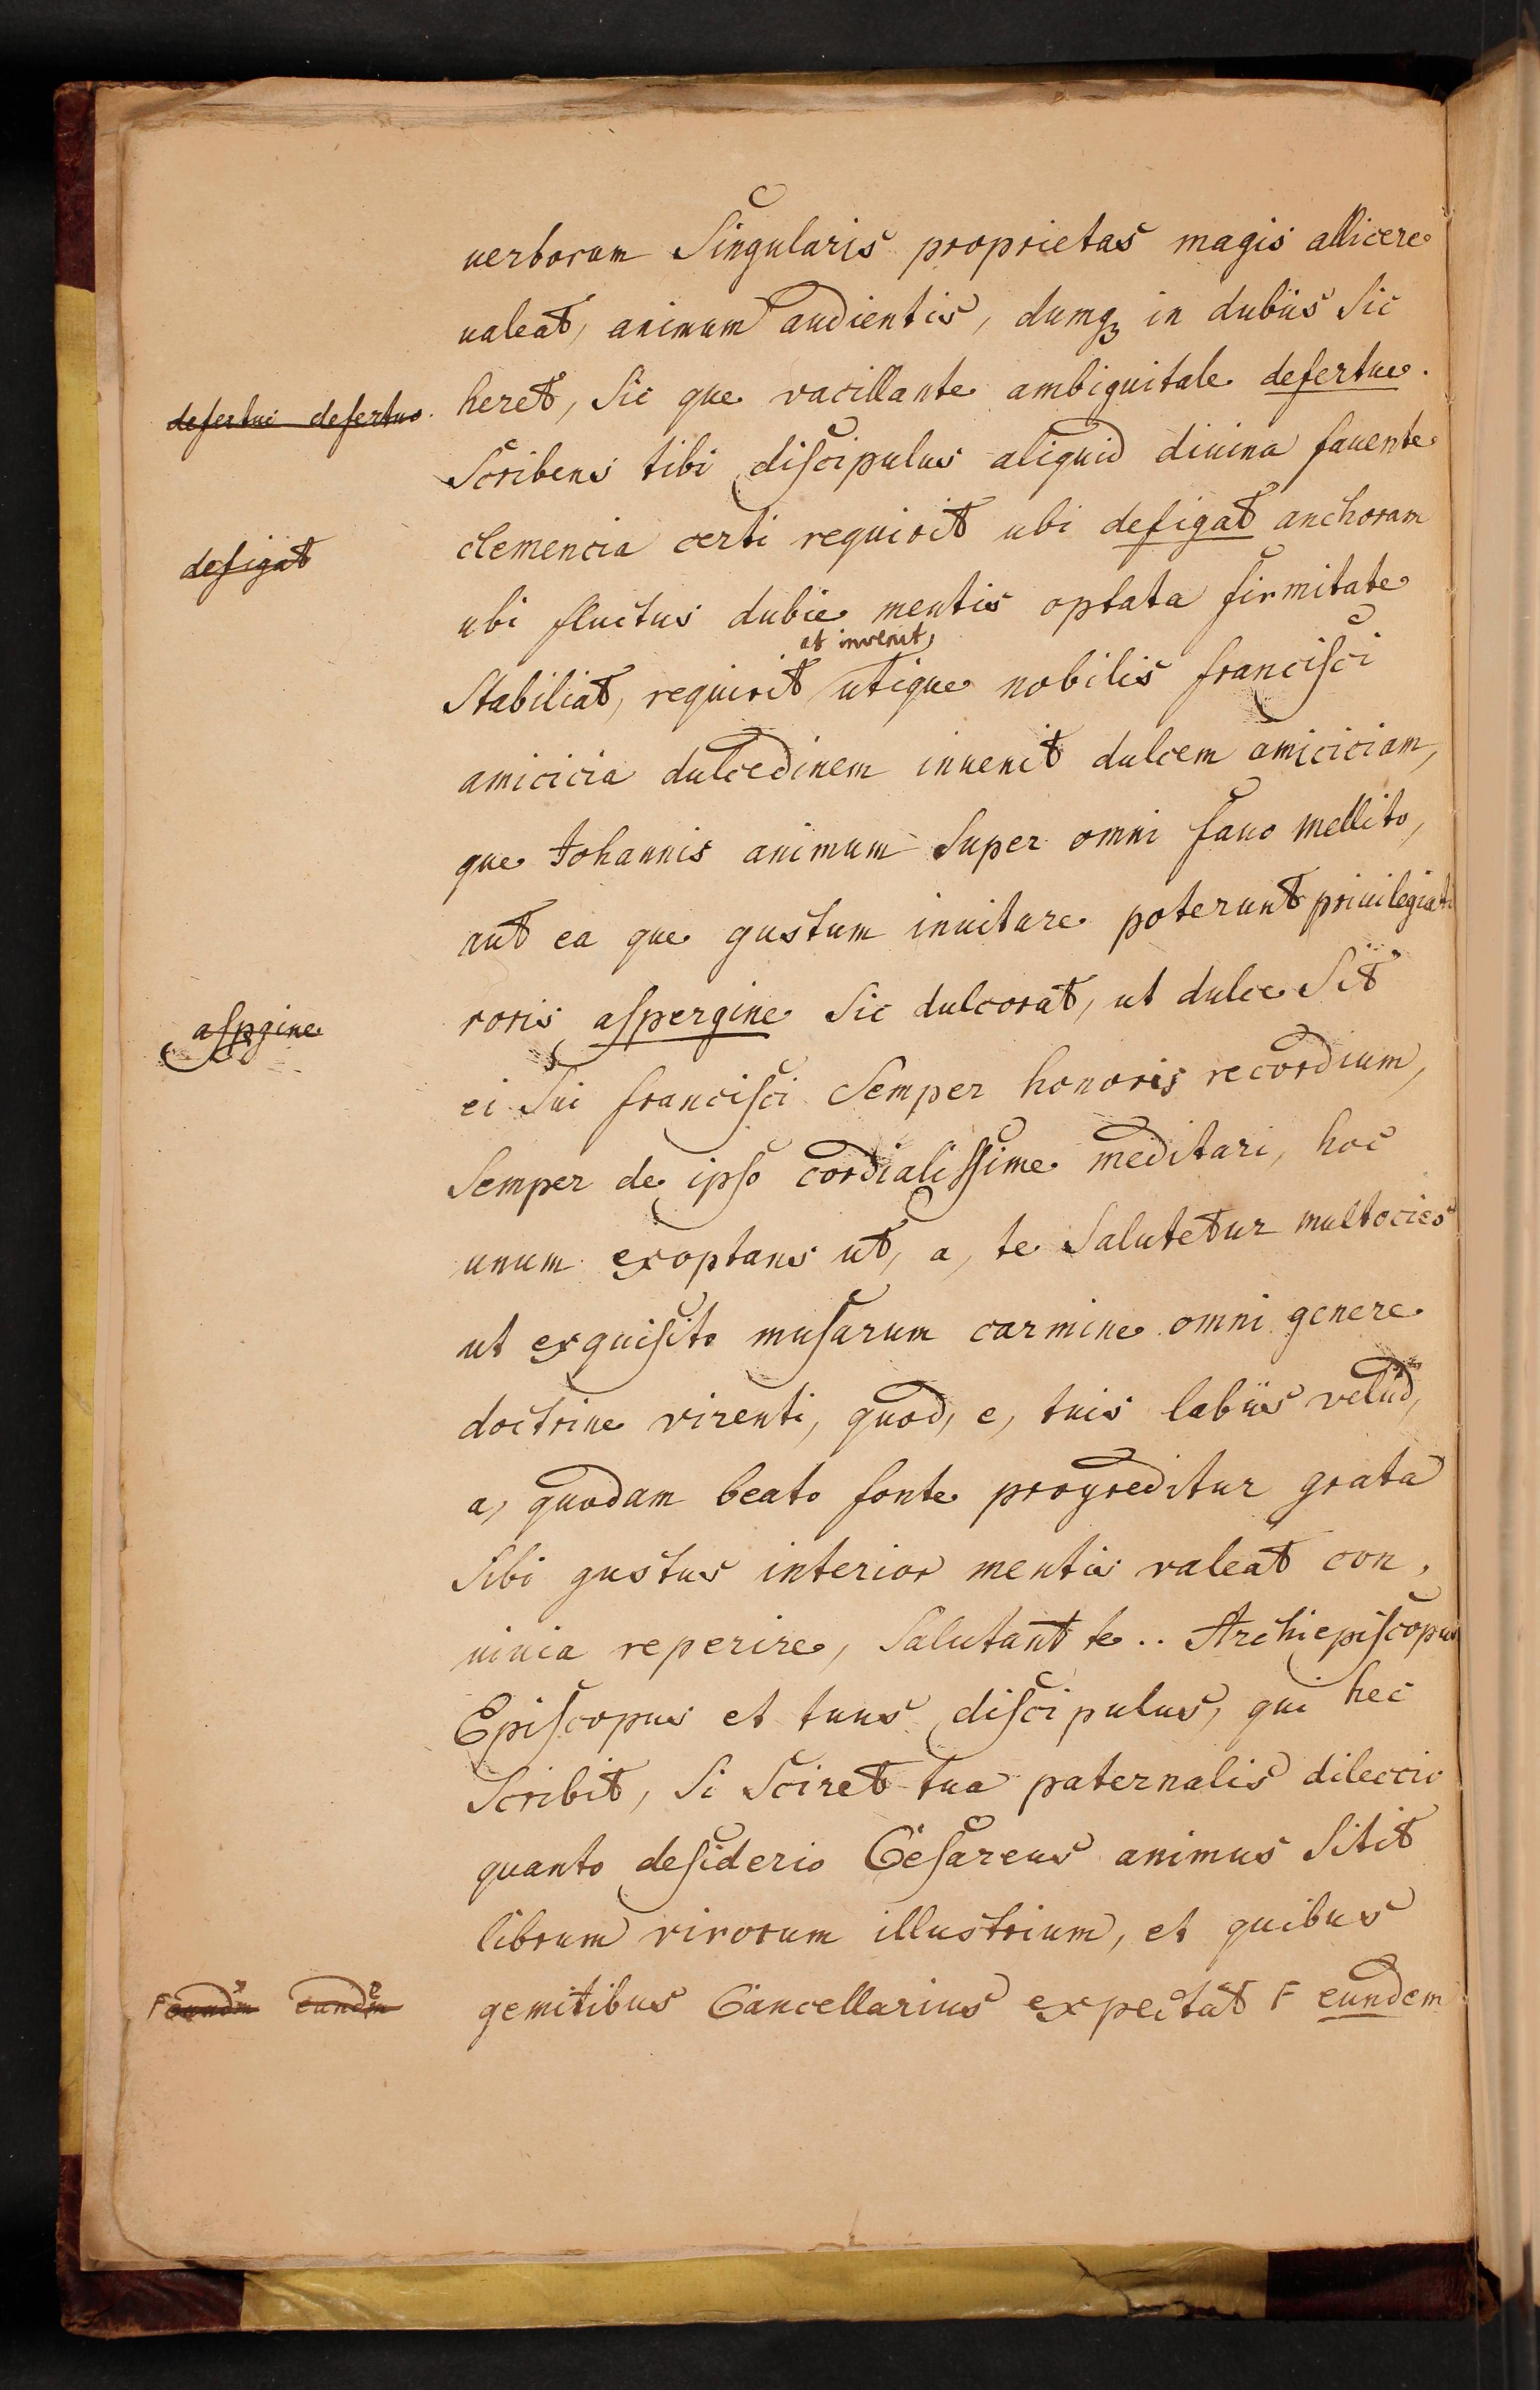 uerborum Singularis proprietas magis allicere
ualeat, animum audientis, dumqꝫ in dubiis Sic
defertui defertuo. heret, Sic que vacillante ambiguitate defertue.
Scribens tibi discipulus aliquid diuina fauente
defigat clemencia certi requirit ubi defigat anchoram
ubi fluctus dubie mentis optata firmitate
et invenit,
Stabiliat, requirit utique nobilis francisci
amicicia dulcedinem inuenit dulcem amiciciam,
que Johannis animum Super omni fauo mellito,
aut ea que gustum inuitare poterunt priuilegiati
aspgine roris aspergine Sic dulcorat, ut dulce Sit
ei Sui francisci Semper honoris recordium,
Semper de ipso cordialissime meditari, hoc
unum exoptans ut, a, te Salutetur multocies
ut exquisito musarum carmine omni genere
doctrine virenti, quod, e, tuis labiis velud,
a, quodam beato fonte progreditur grata
Sibi gustus interior mentis valeat con,
uiuia reperire, Salutant te .. Archiepiscopus
Episcopus et tuus discipulus, qui hec
Scribit, Si Sciret tua paternalis dileccio
quanto desiderio Cesareus animus Sitit
librum virorum illustrium, et quibus
F eundm eundem gemitibus Cancellarius expectat F eundem